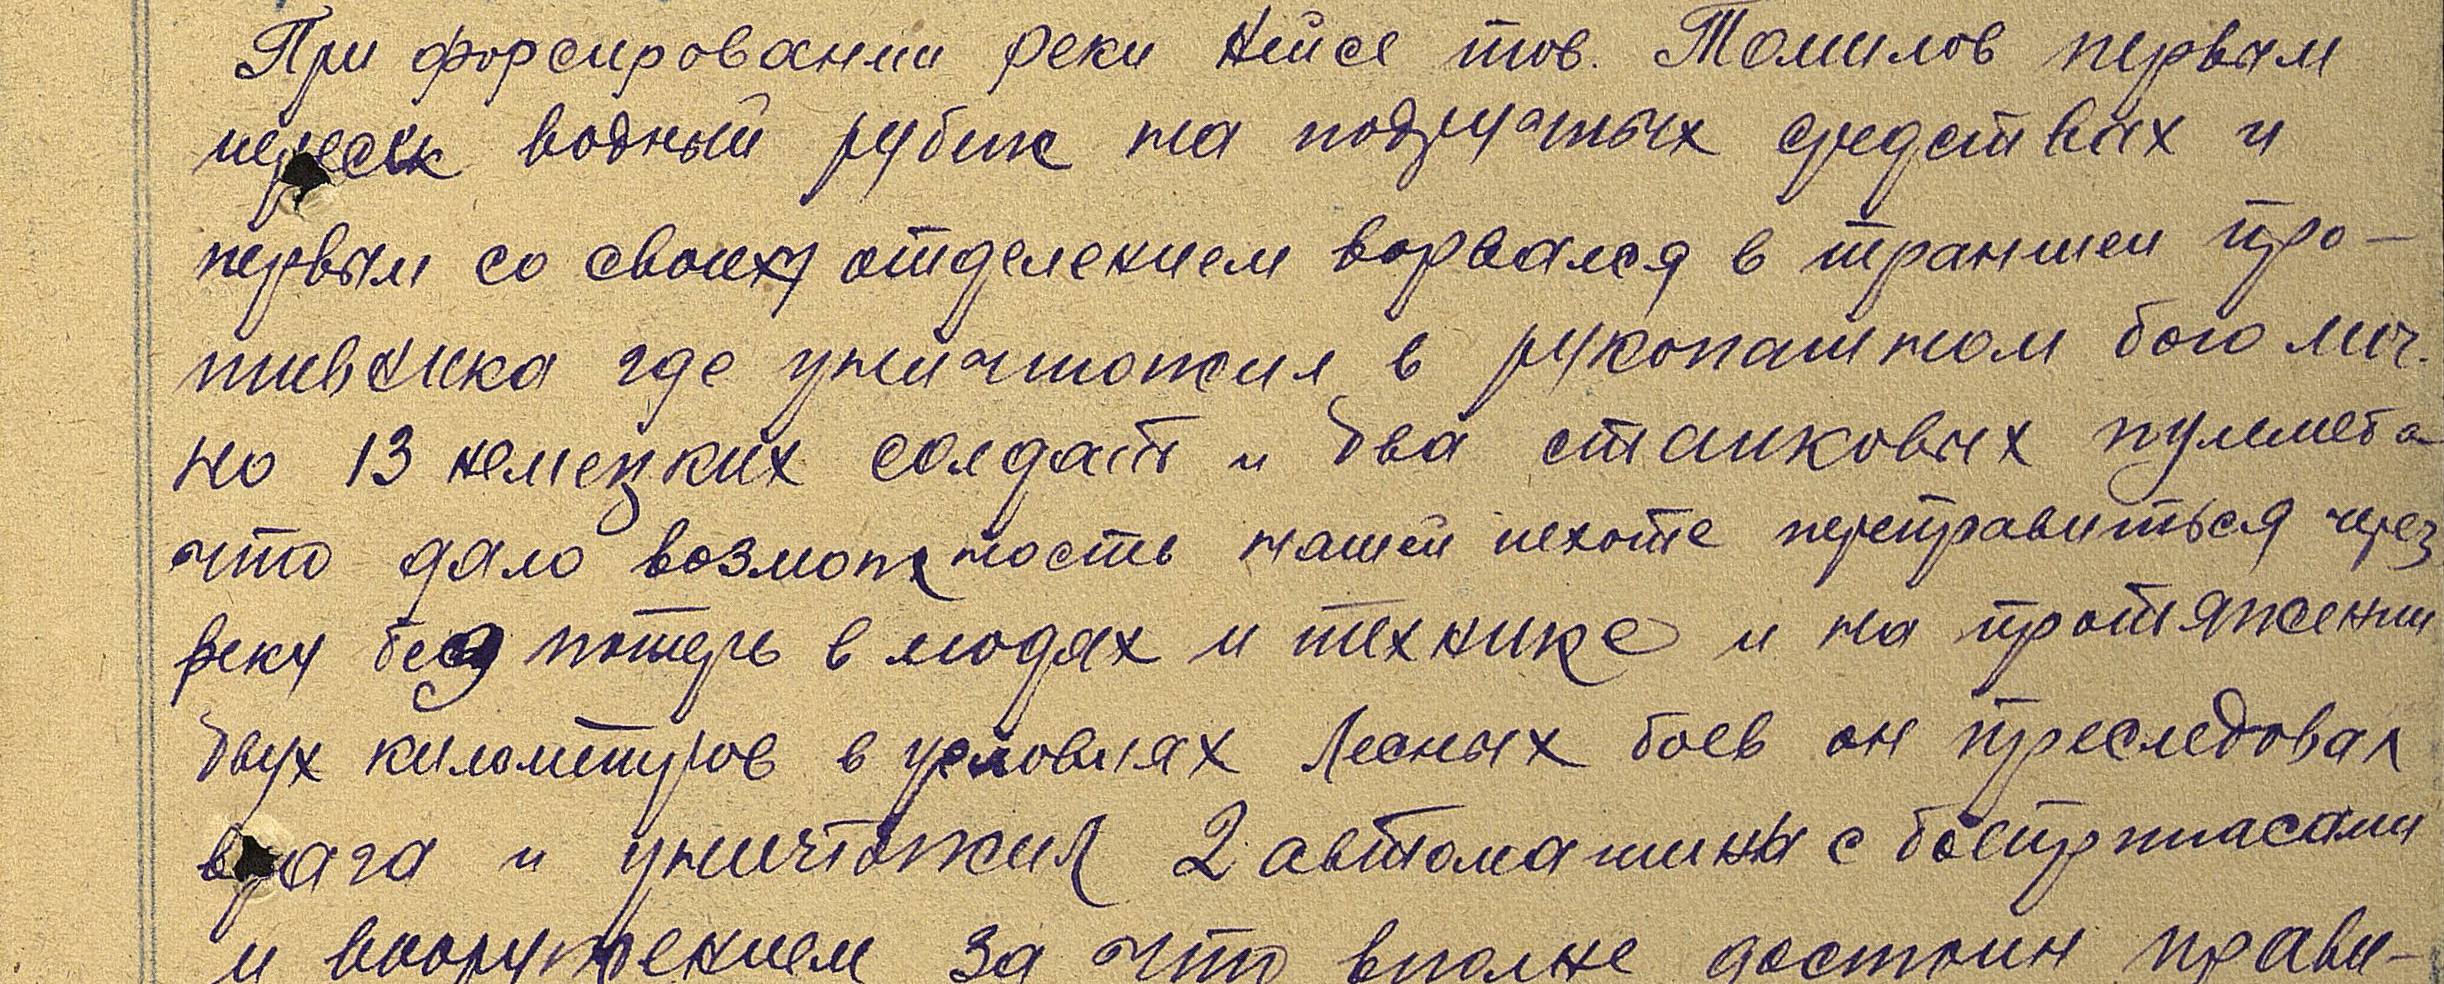 При форсировании реки Нейсе тов. Томилов первым
пересек водный рубеж на подручных средствах и
первым со своим отделением ворвался в траншеи про-
тивника где уничтожил в рукопашном бою лич-
но 13 немецких солдат и два станковых пулемета
что дало возможность нашей пехоте переправиться через
реку без потерь в людях и технике и на протяжении
двух километров в условиях лесных боев он преследовал
врага и уничтожил 2 автомашины с боеприпасами
и вооружением за что вполне достоин прави-